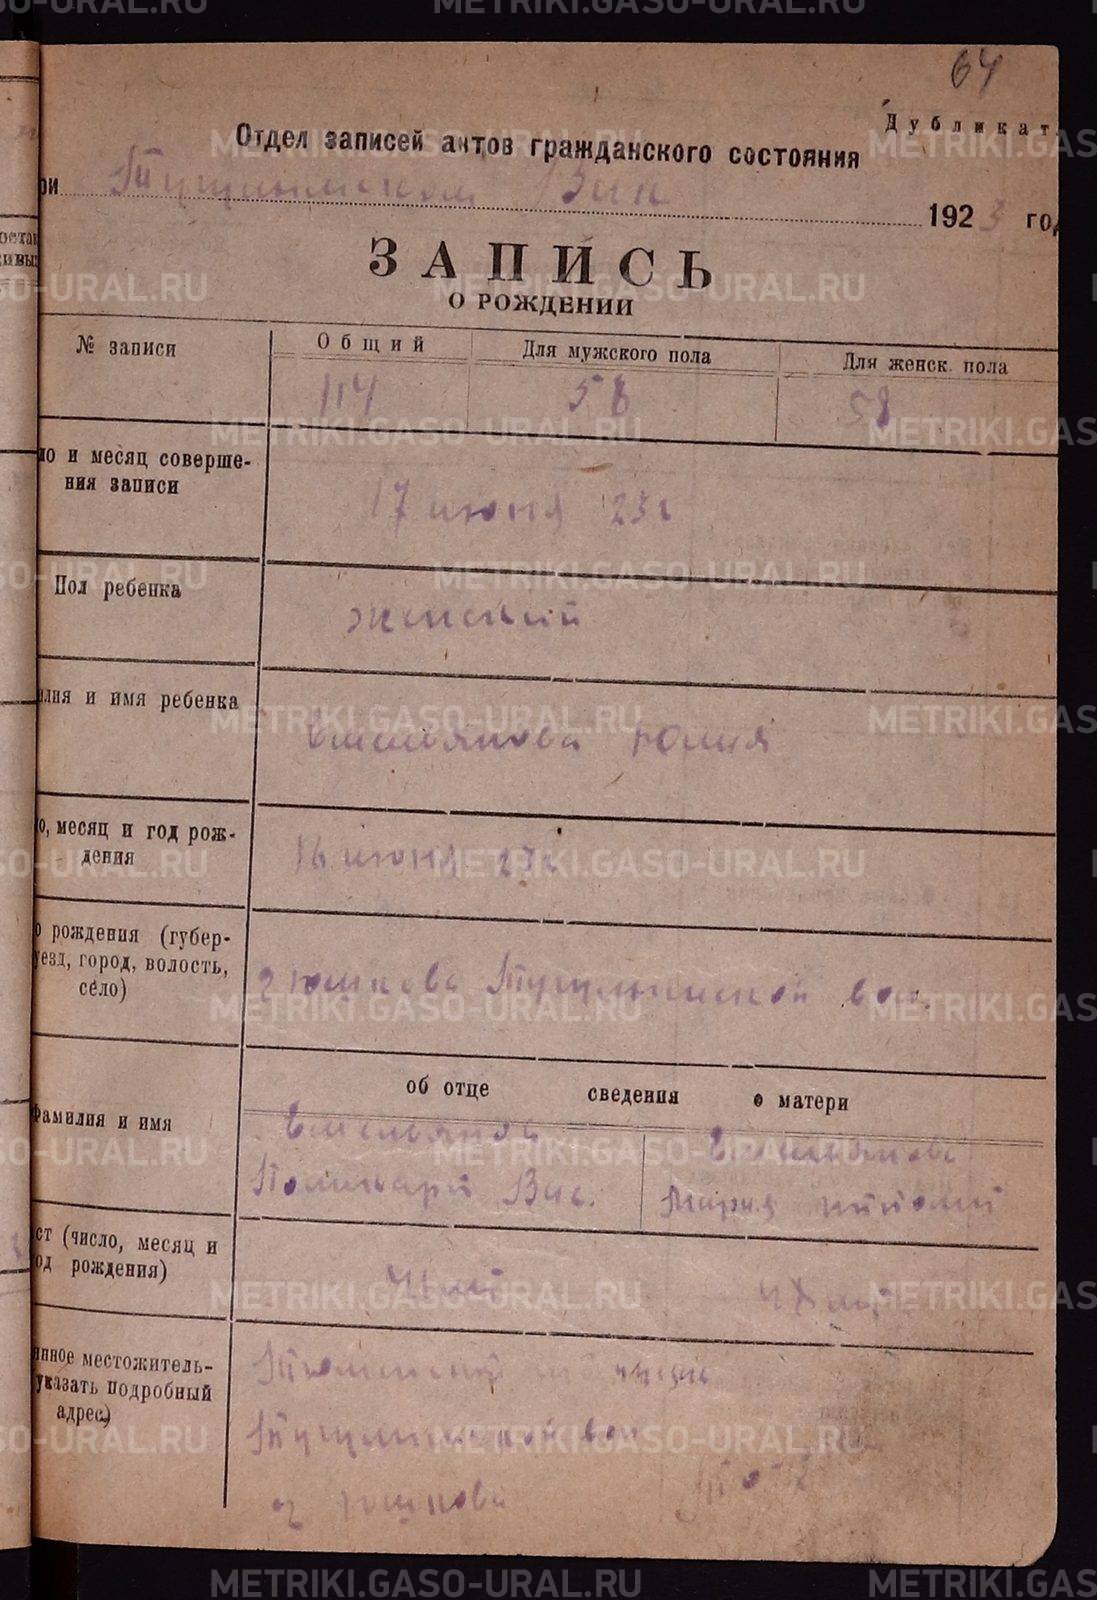 64
Дубликат
Отдел записей актов гражданского состояния
ри Тугулымском Вик 1923 год
ЗАПИСЬ
О РОЖДЕНИИ
№ записи
Общий
Для мужского пола
Для женск. пола
114
58
ло и месяц соверше-
ния записи
17 июня 23 г
Пол ребенка
женский
илия и имя ребенка
Емельянова Юлия
о, месяц и год рож-
дения
16 июня 23 г
о рождения (губер-
уезд, город, волость,
село)
д Юшкова Тугулымской вол.
об отце сведения о матери
Фамилия и имя
Емельянов
Емельянова
Поликарп Вас.
Мария
ст (число, месяц и
од рождения)
янное местожитель-
указать подробный
адрес)
Тюменской
Тугулымской вол
д Юшкова
то ж
METRIKI.GASO-URAL.RU